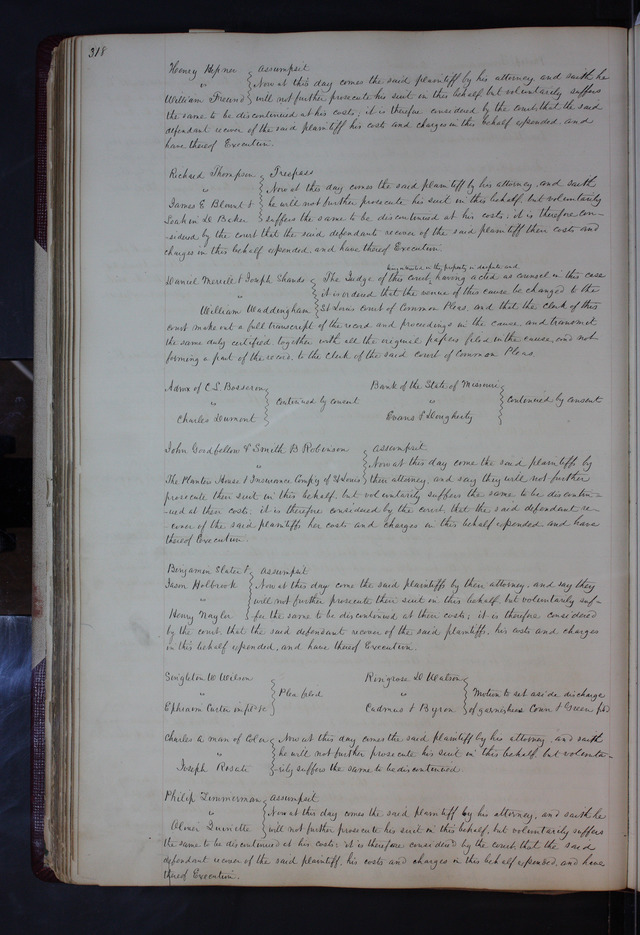 318
Henry Hepner } assumpsit
" } Now at this day comes the said plaintiff by his attorney and saith he
William Freund } will not further prosecute his suit in this behalf but voluntarily suffers
the same to be discontinued at his costs; it is therefore considered by the court, that the said
defendant recover of the said plaintiff his costs and charges in this behalf expended, and
have thereof Execution.
Richard Thompson } Trespass
" } Now at this day comes the said plaintiff by his attorney, and saith
James E Blount & } he will not further prosecute his suit in this behalf, but voluntarily
D Baker } suffers the same to be discontinued at his costs; it is therefore con-
-sidered by the court that the said defendants recover of the said plaintiff their costs and
charges in this behalf expended, and have thereof Execution.
being interested in the property in dispute and
Daniel Merrell & Joseph Shands } The Judge of this court having acted as counsel in this case
" } it is ordered that the venue of this cause be changed to the
William Waddingham } St Louis court of Common Pleas, and that the clerk of this
court make out a full transcript of the record and proceedings in the cause, and transmit
the same duly certified, together with all the original papers filed in the cause, and not
forming a part of the record, to the Clerk of the said court of Common Pleas.
Admx of C. S. Bosseron } continued by consent
"
Charles Dumont
Bank of the State of Missouri } continued by consent
"
Evans & Dougherty
John Goodfellow & Smith B Robinson } assumpsit
" } Now at this day come the said plaintiffs by
The Planters House & Insurance Compy of St Louis } their attorney, and say they will not further
prosecute their suit in this behalf, but voluntarily suffers the same to be discontin=
=ued at their costs; it is therefore considered by the court, that the said defendant re-
-cover of the said plaintiffs her costs and charges in this behalf expended and have
thereof Execution.
Benjamin Slater & } assumpsit
Jason Holbrook } Now at this day come the said plaintiffs by their attorney, and say they
" } will not further prosecute their suit in this behalf, but voluntarily suf-
Henry Nagler } fer the same to be discontinued at their costs; it is therefore considered
by the court, that the said defendant recover of the said plaintiffs, his costs and charges
in this behalf expended, and have thereof Execution.
Singleton W Wilson } Plea filed
"
Ephraim Carter impl &c
Ringrose D Watson } Motion to set aside discharge
"
Cadmus & Byron } of garnishees Conn & Green fd
Charles a man of Color } Now at this day comes the said plaintiff by his attorney, and saith
" } he will not further prosecute his suit in this behalf but volunta-
Joseph Rosati } rily suffers the same to be discontinued.
Philip Zimmerman } assumpsit
" } Now at this day comes the said plaintiff by his attorney, and saith he
Abner } will not further prosecute his suit in this behalf, but voluntarily suffers
the same to be discontinued at his costs: it is therefore considered by the court, that the said
defendant recover of the said plaintiff, his costs and charges in this behalf expended, and have
thereof Execution.